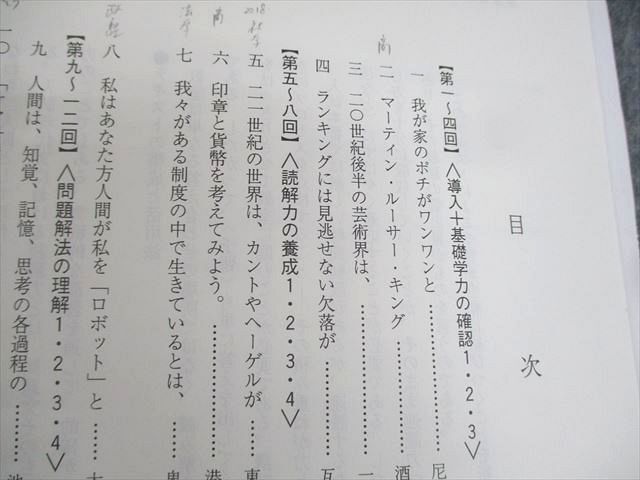 目次
【第一～四回】〈導入＋基礎学力の確認１・２・３〉
一 我が家のポチがワンワンと……………… 尼
商
二 マーティン・ルーサー・キング……… 酒
三 二〇世紀後半の芸術界は、……………… 一
四 ランキングには見逃せない欠落が……… 互
【第五～八回】〈読解力の養成１・２・３・４〉
2018
五 二一世紀の世界は、カントやヘーゲルが…… 東
商
六 印章と貨幣を考えてみよう。……………… 港
法
七 我々がある制度の中で生きているとは、……
八 私はあなた方人間が私を「ロボット」と……
【第九～一二回】〈問題解法の理解１・２・３・４〉
九 人間は、知覚、記憶、思考の各過程の……… 池
一〇